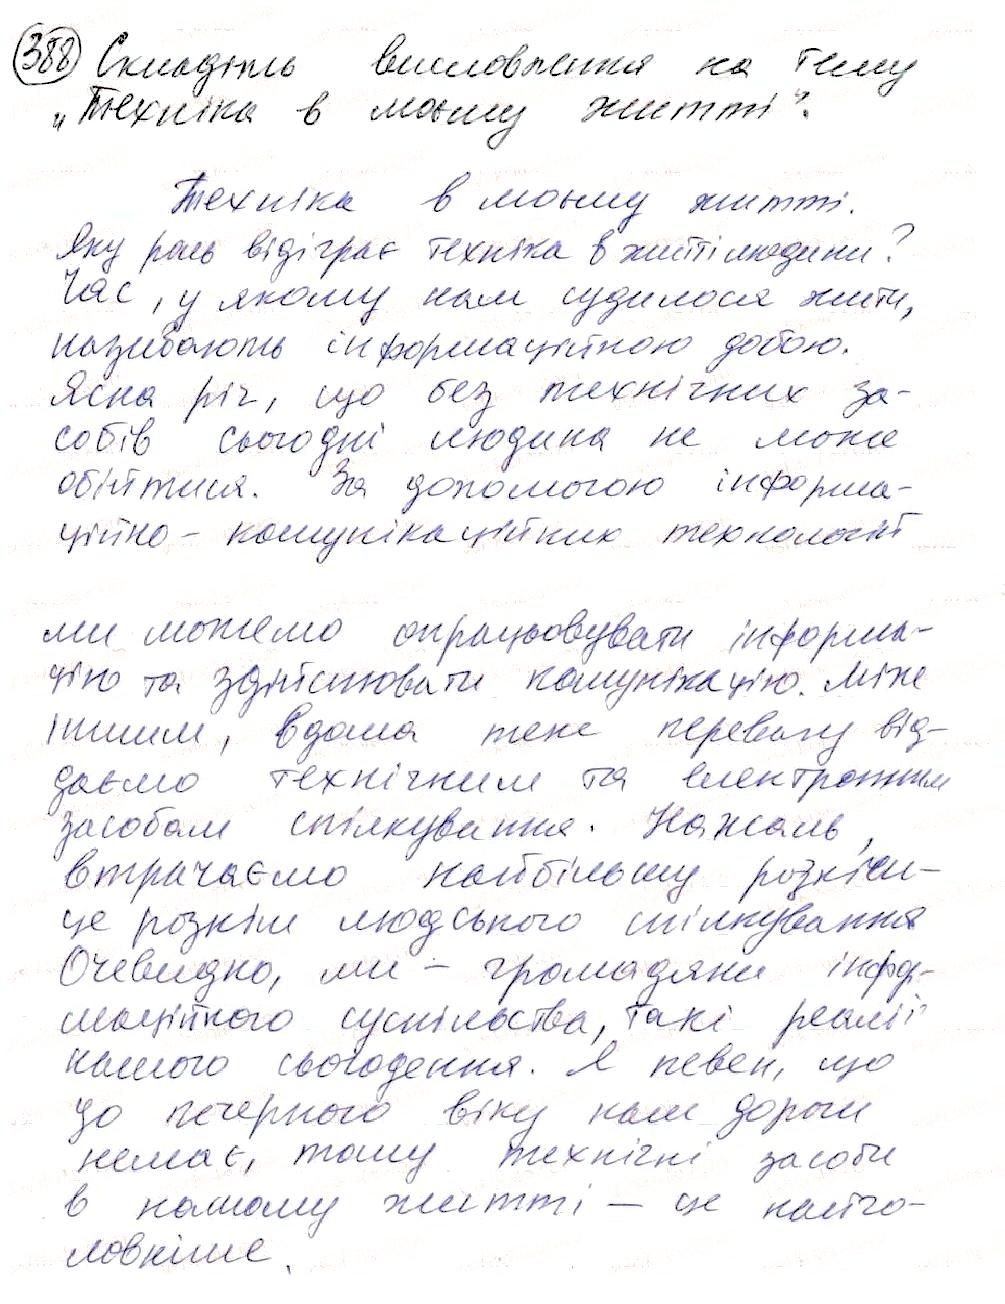 388 Складіть висловлення на тему
„Техніка в моєму житті".
Техніка в моєму житті.
Яку роль відіграє техніка в житті людини?
Час, у якому нам судилося жити,
називають інформаційною добою.
Ясна річ, що без технічних за-
собів сьогодні людина не може
обійтися. За допомогою інформа-
ційно - комунікаційних технологій
ми можемо опрацьовувати інформа-
цію та здійснювати комунікацію. Між
іншим, вдома теж перевагу від-
даємо технічним та електронним
засобам спілкування. На жаль,
втрачаємо найбільшу розкіш -
це розкіш людського спілкування
Очевидно, ми - громадяни інфор-
маційного суспільства, такі реалії
нашого сьогодення. Я певен, що
до печерного віку нам дороги
немає, тому технічні засоби
в нашому житті — це найго-
ловніше.